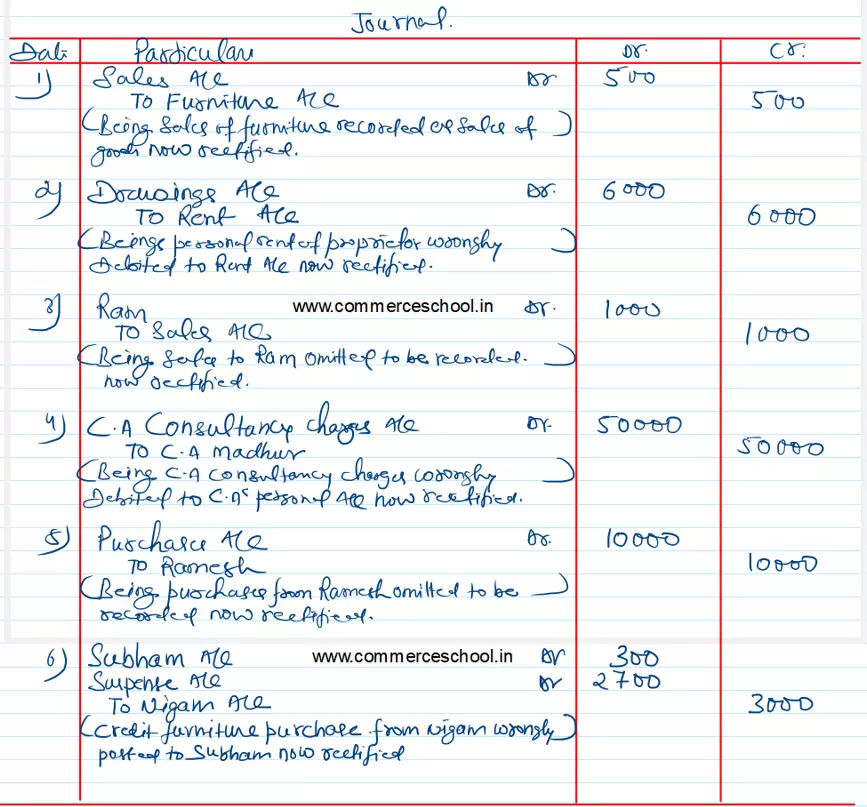 Journal.
Date Particulars Dr. Cr.
1) Sales A/c Dr 500
To Furniture A/c 500
(Being Sales of furniture recorded as sales of )
goods now rectified.
2) Drawings A/c Dr. 6000
To Rent A/c 6000
(Beings personal rent of proprietor wrongly )
Debited to Rent A/c now rectified.
3) Ram www.commerceschool.in Dr. 1000
To Sales A/c 1000
(Being Sales to Ram omitted to be recorded. )
now rectified.
4) C.A Consultancy charges A/c Dr. 50000
To C.A Madhur 50000
(Being C.A consultancy charges wrongly )
Debited to C.A's personal A/c now rectified.
5) Purchase A/c Dr. 10000
To Ramesh 10000
(Being purchases from Ramesh omitted to be )
recorded now rectified.
6) Subham A/c www.commerceschool.in Dr 300
Suspense A/c Dr 2700
To Nigam A/c 3000
(Credit furniture purchase from Nigam wrongly)
posted to Subham now rectified